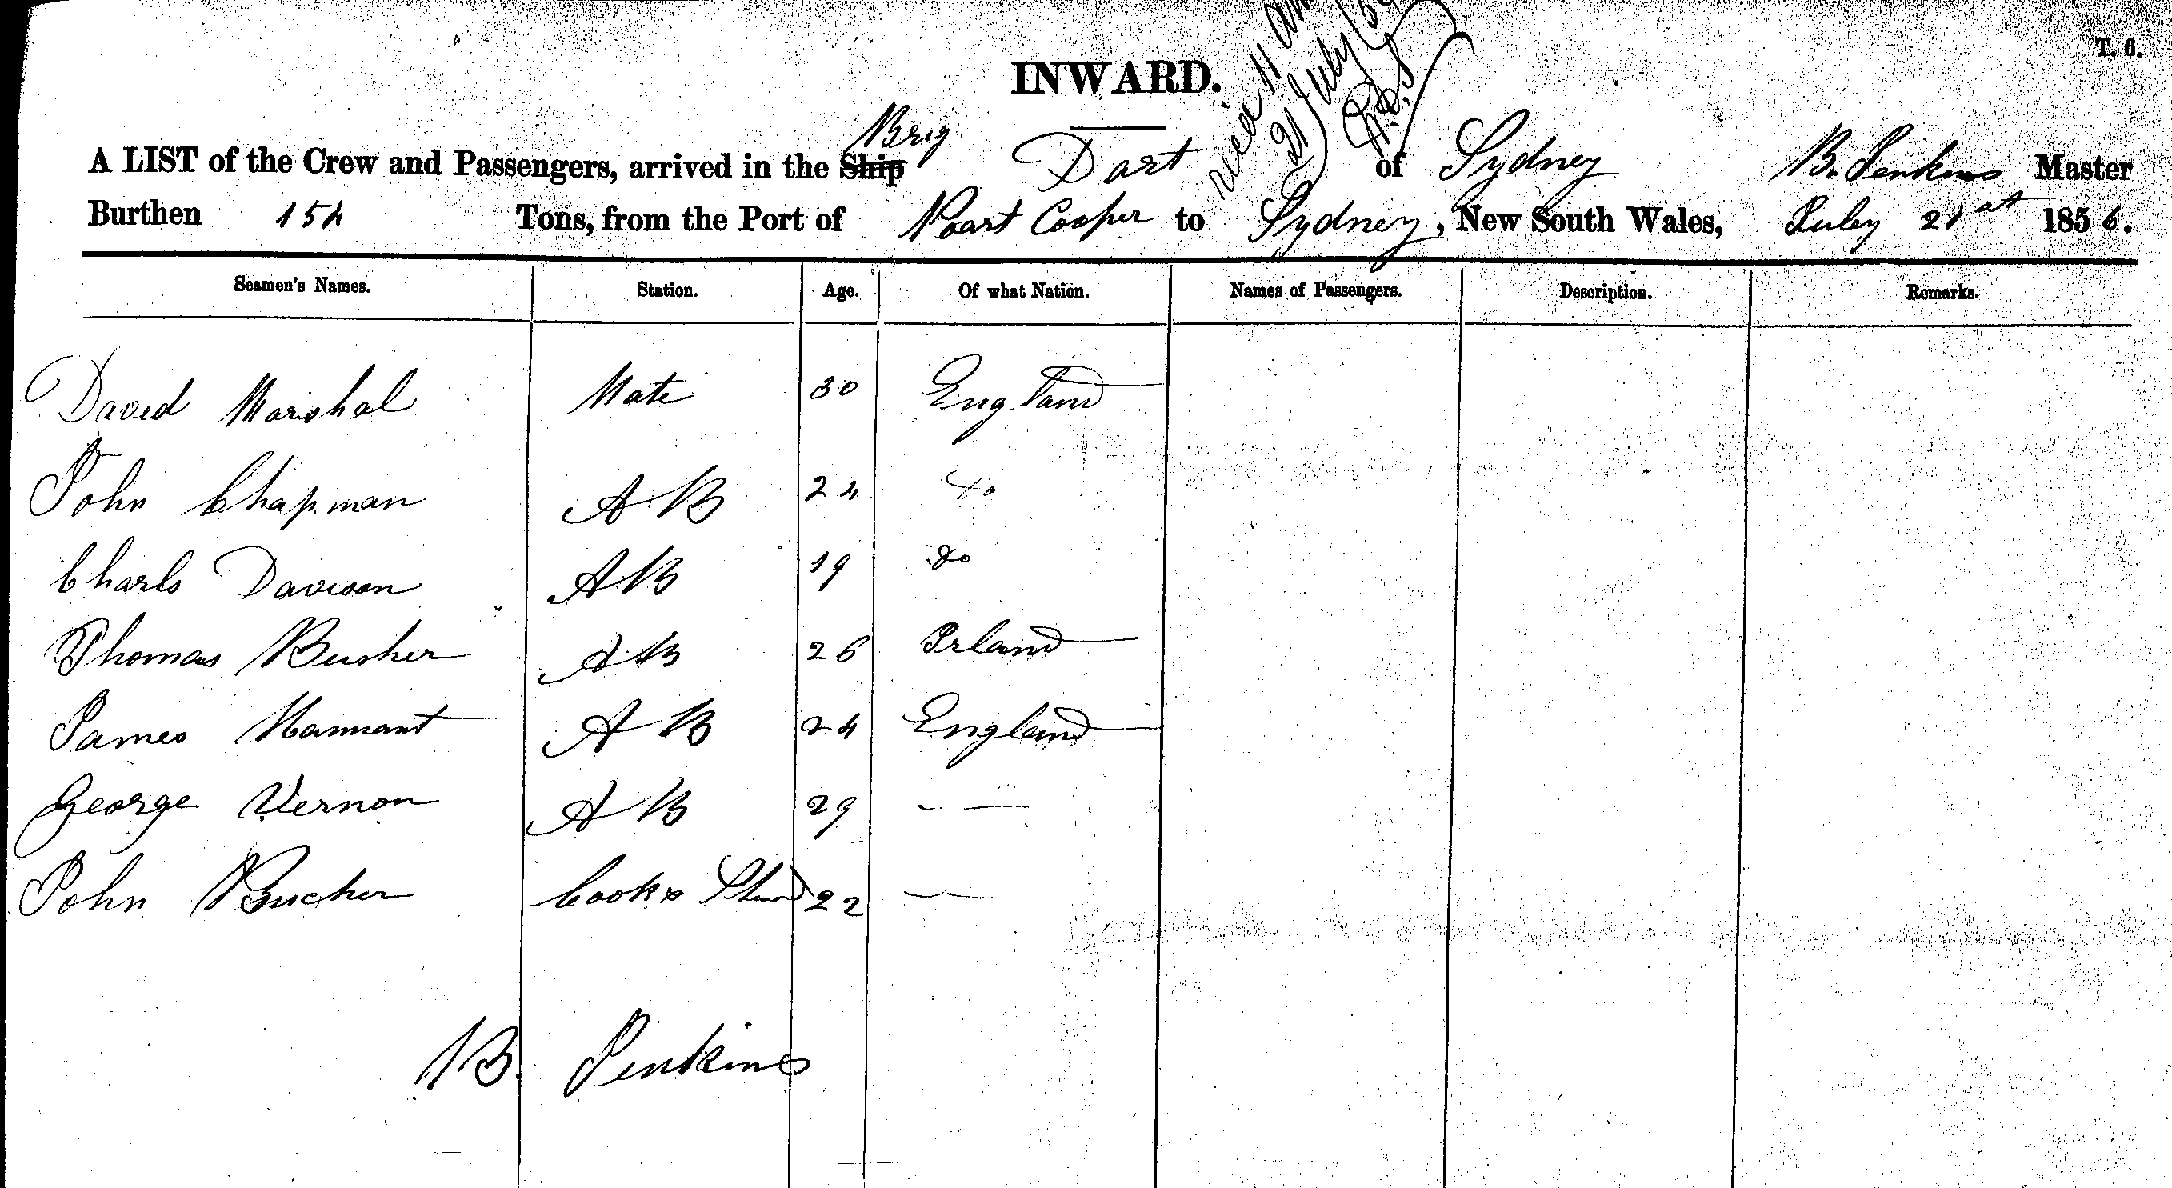 T. 6.
INWARD.
21 July
Brig
A LIST of the Crew and Passengers, arrived in the Ship Dart of Sydney B. Jenkins Master
Burthen 154 Tons, from the Port of Poart Cooper to Sydney, New South Wales, July 21st 1856.
Seamen's Names. Station. Age. Of what Nation. Names of Passengers. Description. Remarks.
David Marshal Mate 30 England
John Chapman AB 24 Do
Charls Davison AB 19 Do
Thomas Busher AB 26 Irland
James Hannant AB 24 England
George Vernon AB 29 — —
John Bucher Cook & Stwd 22 —
B. Jenkins